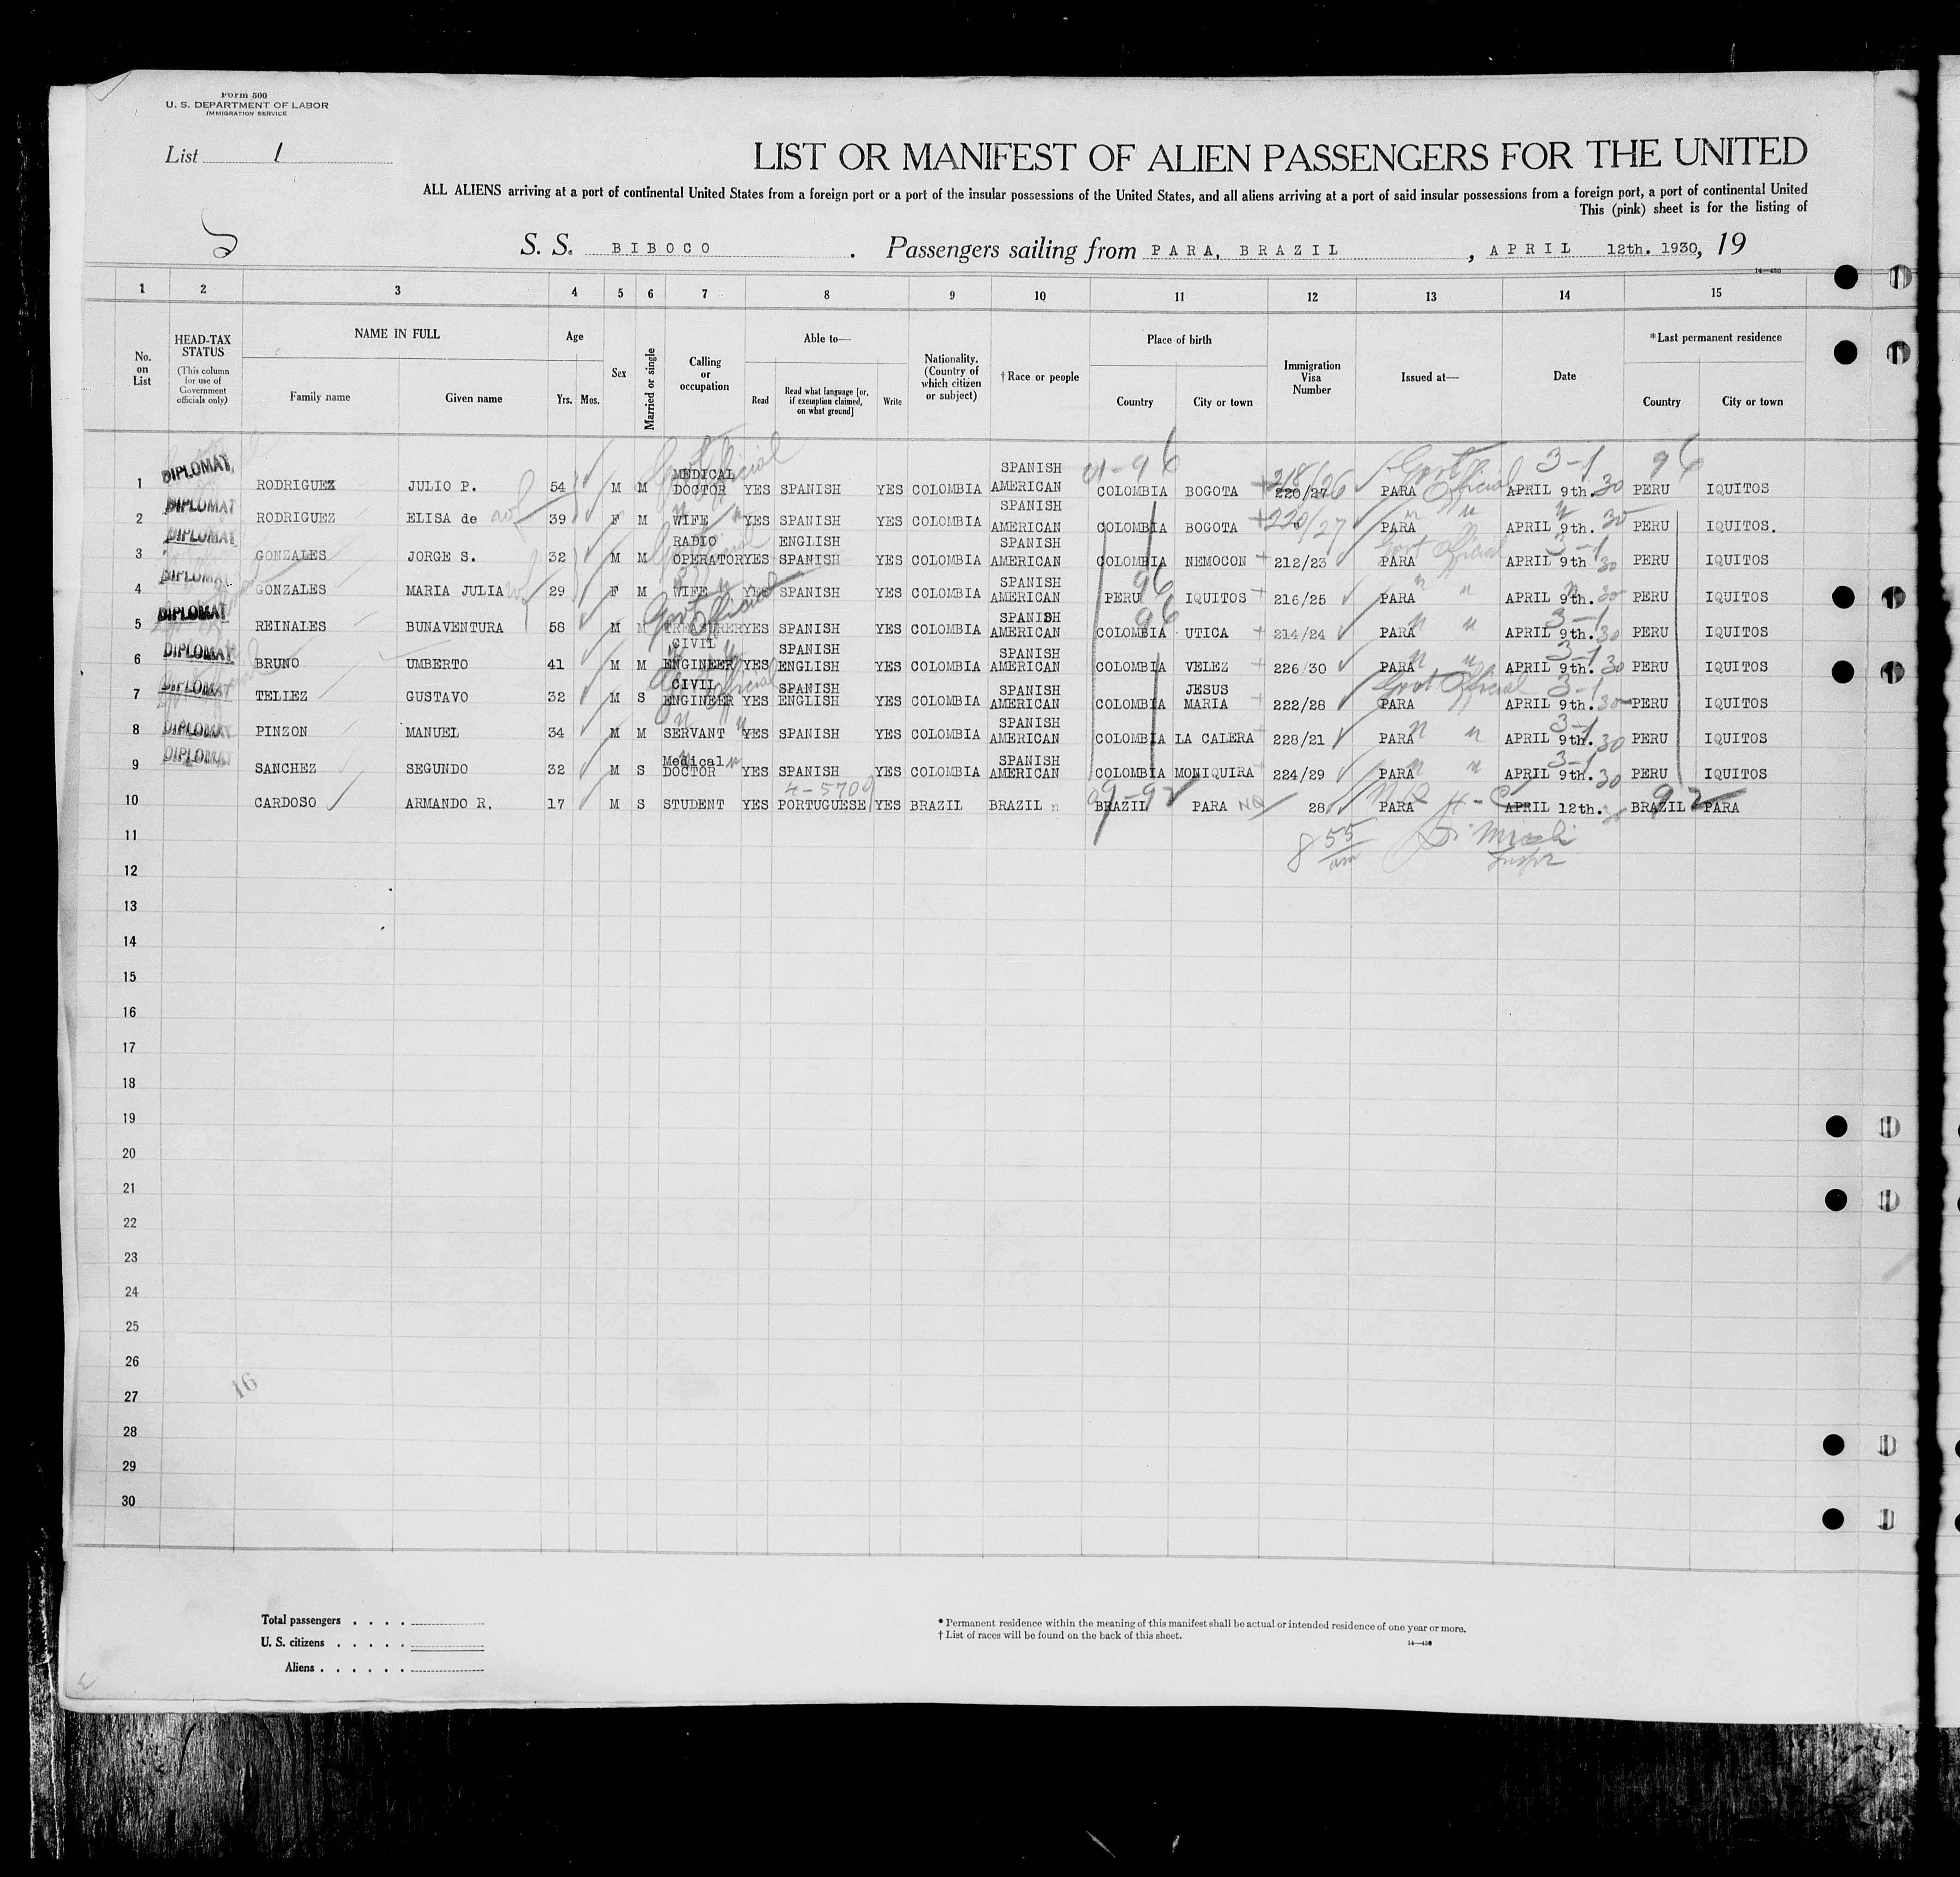 Form 500
U. S. DEPARTMENT OF LABOR
IMMIGRATION SERVICE
List 1
LIST OR MANIFEST OF ALIEN PASSENGERS FOR THE UNITED
ALL ALIENS arriving at a port of continental United States from a foreign port or a port of the insular possessions of the United States, and all aliens arriving at a port of said insular possessions from a foreign port, a port of continental United
This (pink) sheet is for the listing of
S. S. BIBOCO . Passengers sailing from PARA, BRAZIL , APRIL 12th. 1930, 19
14—430
1 2 3 4 5 6 7 8 9 10 11 12 13 14 15
No. on List
HEAD-TAX STATUS (This column for use of Government officials only)
NAME IN FULL Family name Given name
Age Yrs. Mos.
Sex
Married or single
Calling or occupation
Able to— Read Read what language [or, if exemption claimed, on what ground] Write
Nationality. (Country of which citizen or subject)
†Race or people
Place of birth Country City or town
Immigration Visa Number
Issued at—
Date
*Last permanent residence Country City or town
1 DIPLOMAT RODRIGUEZ JULIO P. 54 M M MEDICAL DOCTOR YES SPANISH YES COLOMBIA SPANISH AMERICAN COLOMBIA BOGOTA 220/27 218/26 PARA Govt Official APRIL 9th. 30 3-1 PERU 96 IQUITOS
2 DIPLOMAT RODRIGUEZ ELISA de 39 F M WIFE YES SPANISH YES COLOMBIA SPANISH AMERICAN COLOMBIA BOGOTA 220/27 PARA " " APRIL 9th. 30 PERU IQUITOS.
3 DIPLOMAT GONZALES JORGE S. 32 M M RADIO OPERATOR YES ENGLISH SPANISH YES COLOMBIA SPANISH AMERICAN COLOMBIA NEMOCON 212/23 PARA Govt Official APRIL 9th 30 3-1 PERU IQUITOS
4 DIPLOMAT GONZALES MARIA JULIA 29 F M WIFE YES SPANISH YES COLOMBIA SPANISH AMERICAN PERU 96 IQUITOS 216/25 PARA " " APRIL 9th. 30 PERU IQUITOS
5 DIPLOMAT REINALES BUNAVENTURA 58 M M TREASURER Govt Official YES SPANISH YES COLOMBIA SPANISH AMERICAN COLOMBIA 96 UTICA 214/24 PARA " " APRIL 9th. 30 3-1 PERU IQUITOS
6 DIPLOMAT BRUNO UMBERTO 41 M M CIVIL ENGINEER YES SPANISH ENGLISH YES COLOMBIA SPANISH AMERICAN COLOMBIA VELEZ 226/30 PARA " " APRIL 9th. 30 3-1 PERU IQUITOS
7 DIPLOMAT TELIEZ GUSTAVO 32 M S CIVIL ENGINEER YES SPANISH ENGLISH YES COLOMBIA SPANISH AMERICAN COLOMBIA JESUS MARIA 222/28 PARA Govt Official APRIL 9th. 30 3-1 PERU IQUITOS
8 DIPLOMAT PINZON MANUEL 34 M M SERVANT YES SPANISH YES COLOMBIA SPANISH AMERICAN COLOMBIA LA CALERA 228/21 PARA " " APRIL 9th. 30 3-1 PERU IQUITOS
9 DIPLOMAT SANCHEZ SEGUNDO 32 M S Medical DOCTOR YES SPANISH YES COLOMBIA SPANISH AMERICAN COLOMBIA MONIQUIRA 224/29 PARA " " APRIL 9th. 30 3-1 PERU IQUITOS
10 CARDOSO ARMANDO R. 17 M S STUDENT YES 4-5709 PORTUGUESE YES BRAZIL BRAZIL BRAZIL PARA NQ 28 PARA NQ APRIL 12th. BRAZIL 92 PARA
11
8 55 am Inspr
12
13
14
15
16
17
18
19
20
21
22
23
24
25
26
16
27
28
29
30
Total passengers . . . .
U. S. citizens . . . . .
Aliens . . . . . .
* Permanent residence within the meaning of this manifest shall be actual or intended residence of one year or more.
† List of races will be found on the back of this sheet.
14—430